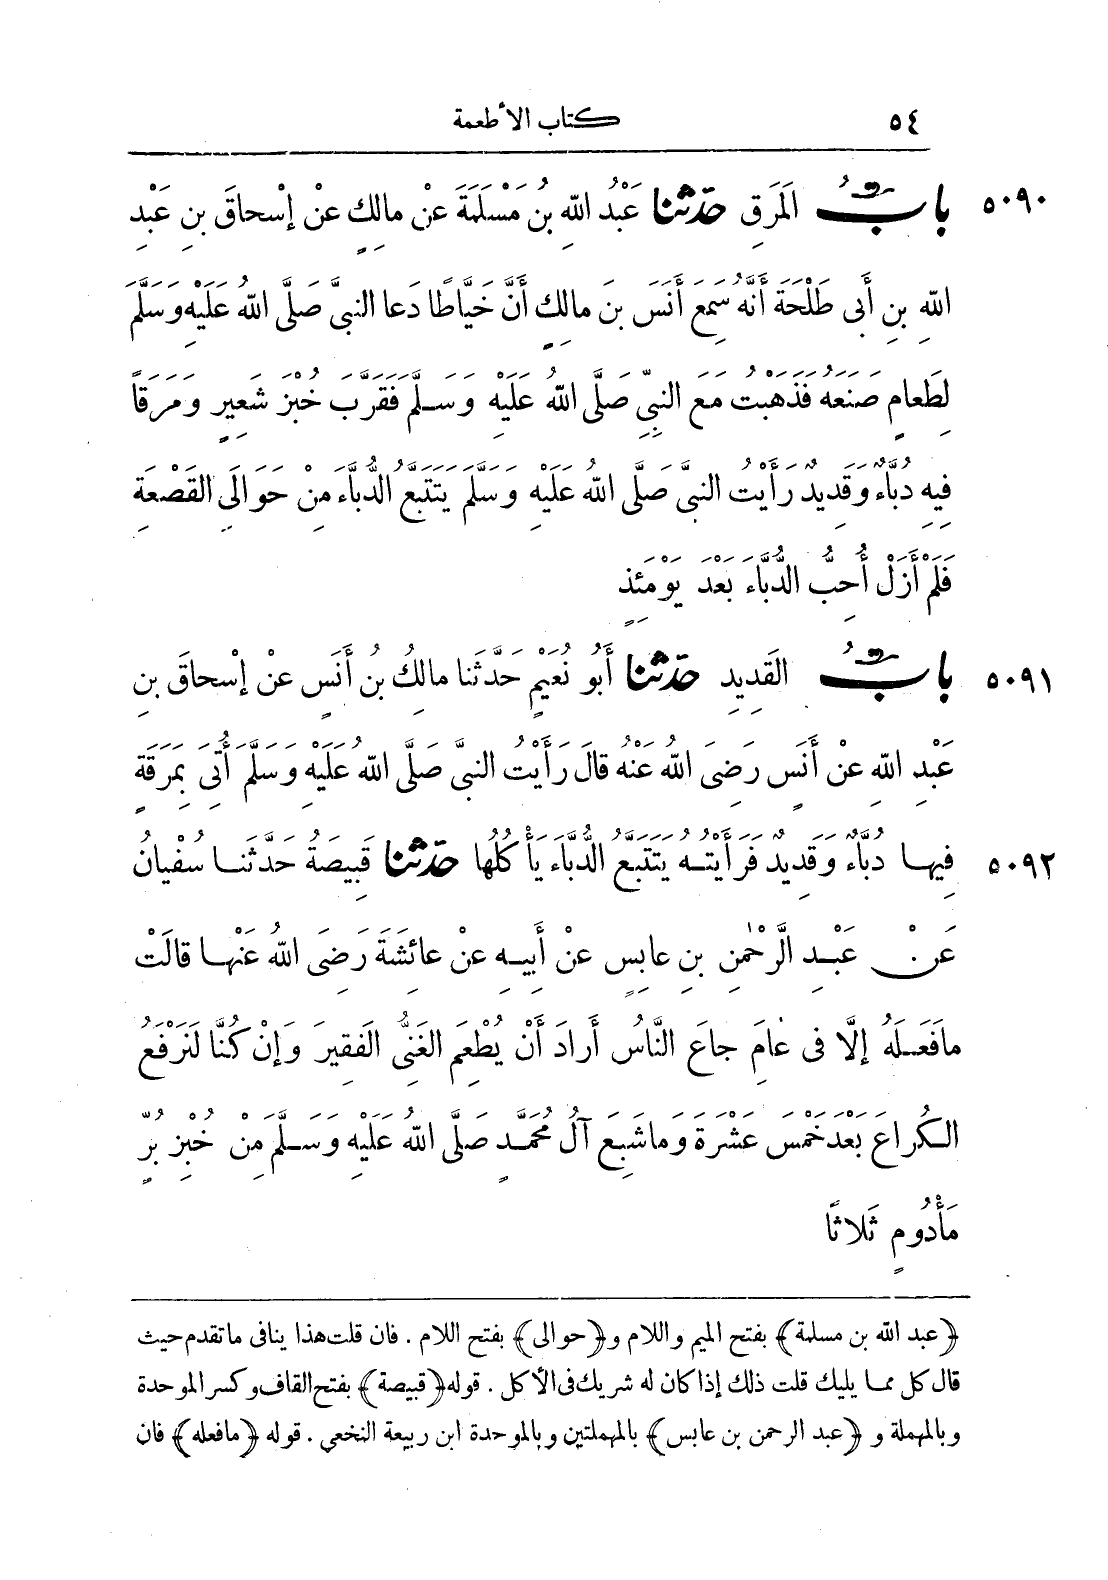 ٥٤ كتاب الأطعمة
٥٠٩٠ بابُ المَرَقِ حدّثنا عَبْدُ اللهِ بنُ مَسْلَمَةَ عنْ مالِكٍ عنْ إسْحاقَ بنِ عَبْدِ
اللهِ بنِ أَبى طَلْحَةَ أَنَّهُ سَمِعَ أَنَسَ بنَ مالِكٍ أَنَّ خَيَّاطًا دَعا النبىَّ صَلَّى اللهُ عَلَيْهِ وَسَلَّمَ
لِطَعامٍ صَنَعَهُ فَذَهَبْتُ مَعَ النبِىِّ صَلَّى اللهُ عَلَيْهِ وَسَلَّمَ فَقَرَّبَ خُبْزَ شَعِيرٍ ومَرَقاً
فِيهِ دُبَّاءٌ وَقَدِيدٌ رَأَيْتُ النبىَّ صَلَّى اللهُ عَلَيْهِ وَسَلَّمَ يَتَتَبَّعُ الدُّبَّاءَ مِنْ حَوالَىِ القَصْعَةِ
فَلَمْ أَزَلْ أُحِبُّ الدُّبَّاءَ بَعْدَ يَوْمَئِذٍ
٥٠٩١ بابُ القَدِيدِ حدّثنا أَبُو نُعَيْمٍ حَدَّثَنا مالِكُ بنُ أَنَسٍ عنْ إسْحاقَ بنِ
عَبْدِ اللهِ عنْ أَنَسٍ رَضِىَ اللهُ عَنْهُ قالَ رَأَيْتُ النبىَّ صَلَّى اللهُ عَلَيْهِ وَسَلَّمَ أُتِىَ بِمَرَقَةٍ
٥٠٩٢ فِيها دُبَّاءٌ وَقَدِيدٌ فَرَأَيْتُهُ يَتَتَبَّعُ الدُّبَّاءَ يَأْكُلُها حدّثنا قَبِيصَةُ حَدَّثَنا سُفْيانُ
عَنْ عَبْدِ الرَّحْمٰنِ بنِ عابِسٍ عنْ أَبِيهِ عنْ عائِشَةَ رَضِىَ اللهُ عَنْها قالَتْ
مافَعَلَهُ إلَّا فى عامٍ جاعَ النَّاسُ أَرادَ أَنْ يُطْعِمَ الغَنِىُّ الفَقِيرَ وَإنْ كُنَّا لَنَرْفَعُ
الكُراعَ بَعْدَ خَمْسَ عَشْرَةَ وماشَبِعَ آلُ مُحَمَّدٍ صَلَّى اللهُ عَلَيْهِ وَسَلَّمَ مِنْ خُبْزِ بُرٍّ
مَأْدُومٍ ثَلاثًا
﴿عبد الله بن مسلمة﴾ بفتح الميم واللام و﴿حوالى﴾ بفتح اللام . فان قلت هذا ينافى ماتقدم حيث
قال كل مما يليك قلت ذلك إذا كان له شريك فى الأكل . قوله ﴿قبيصة﴾ بفتح القاف وكسر الموحدة
وبالمهملة و ﴿عبد الرحمن بن عابس﴾ بالمهملتين وبالموحدة ابن ربيعة النخعي . قوله ﴿مافعله﴾ فان